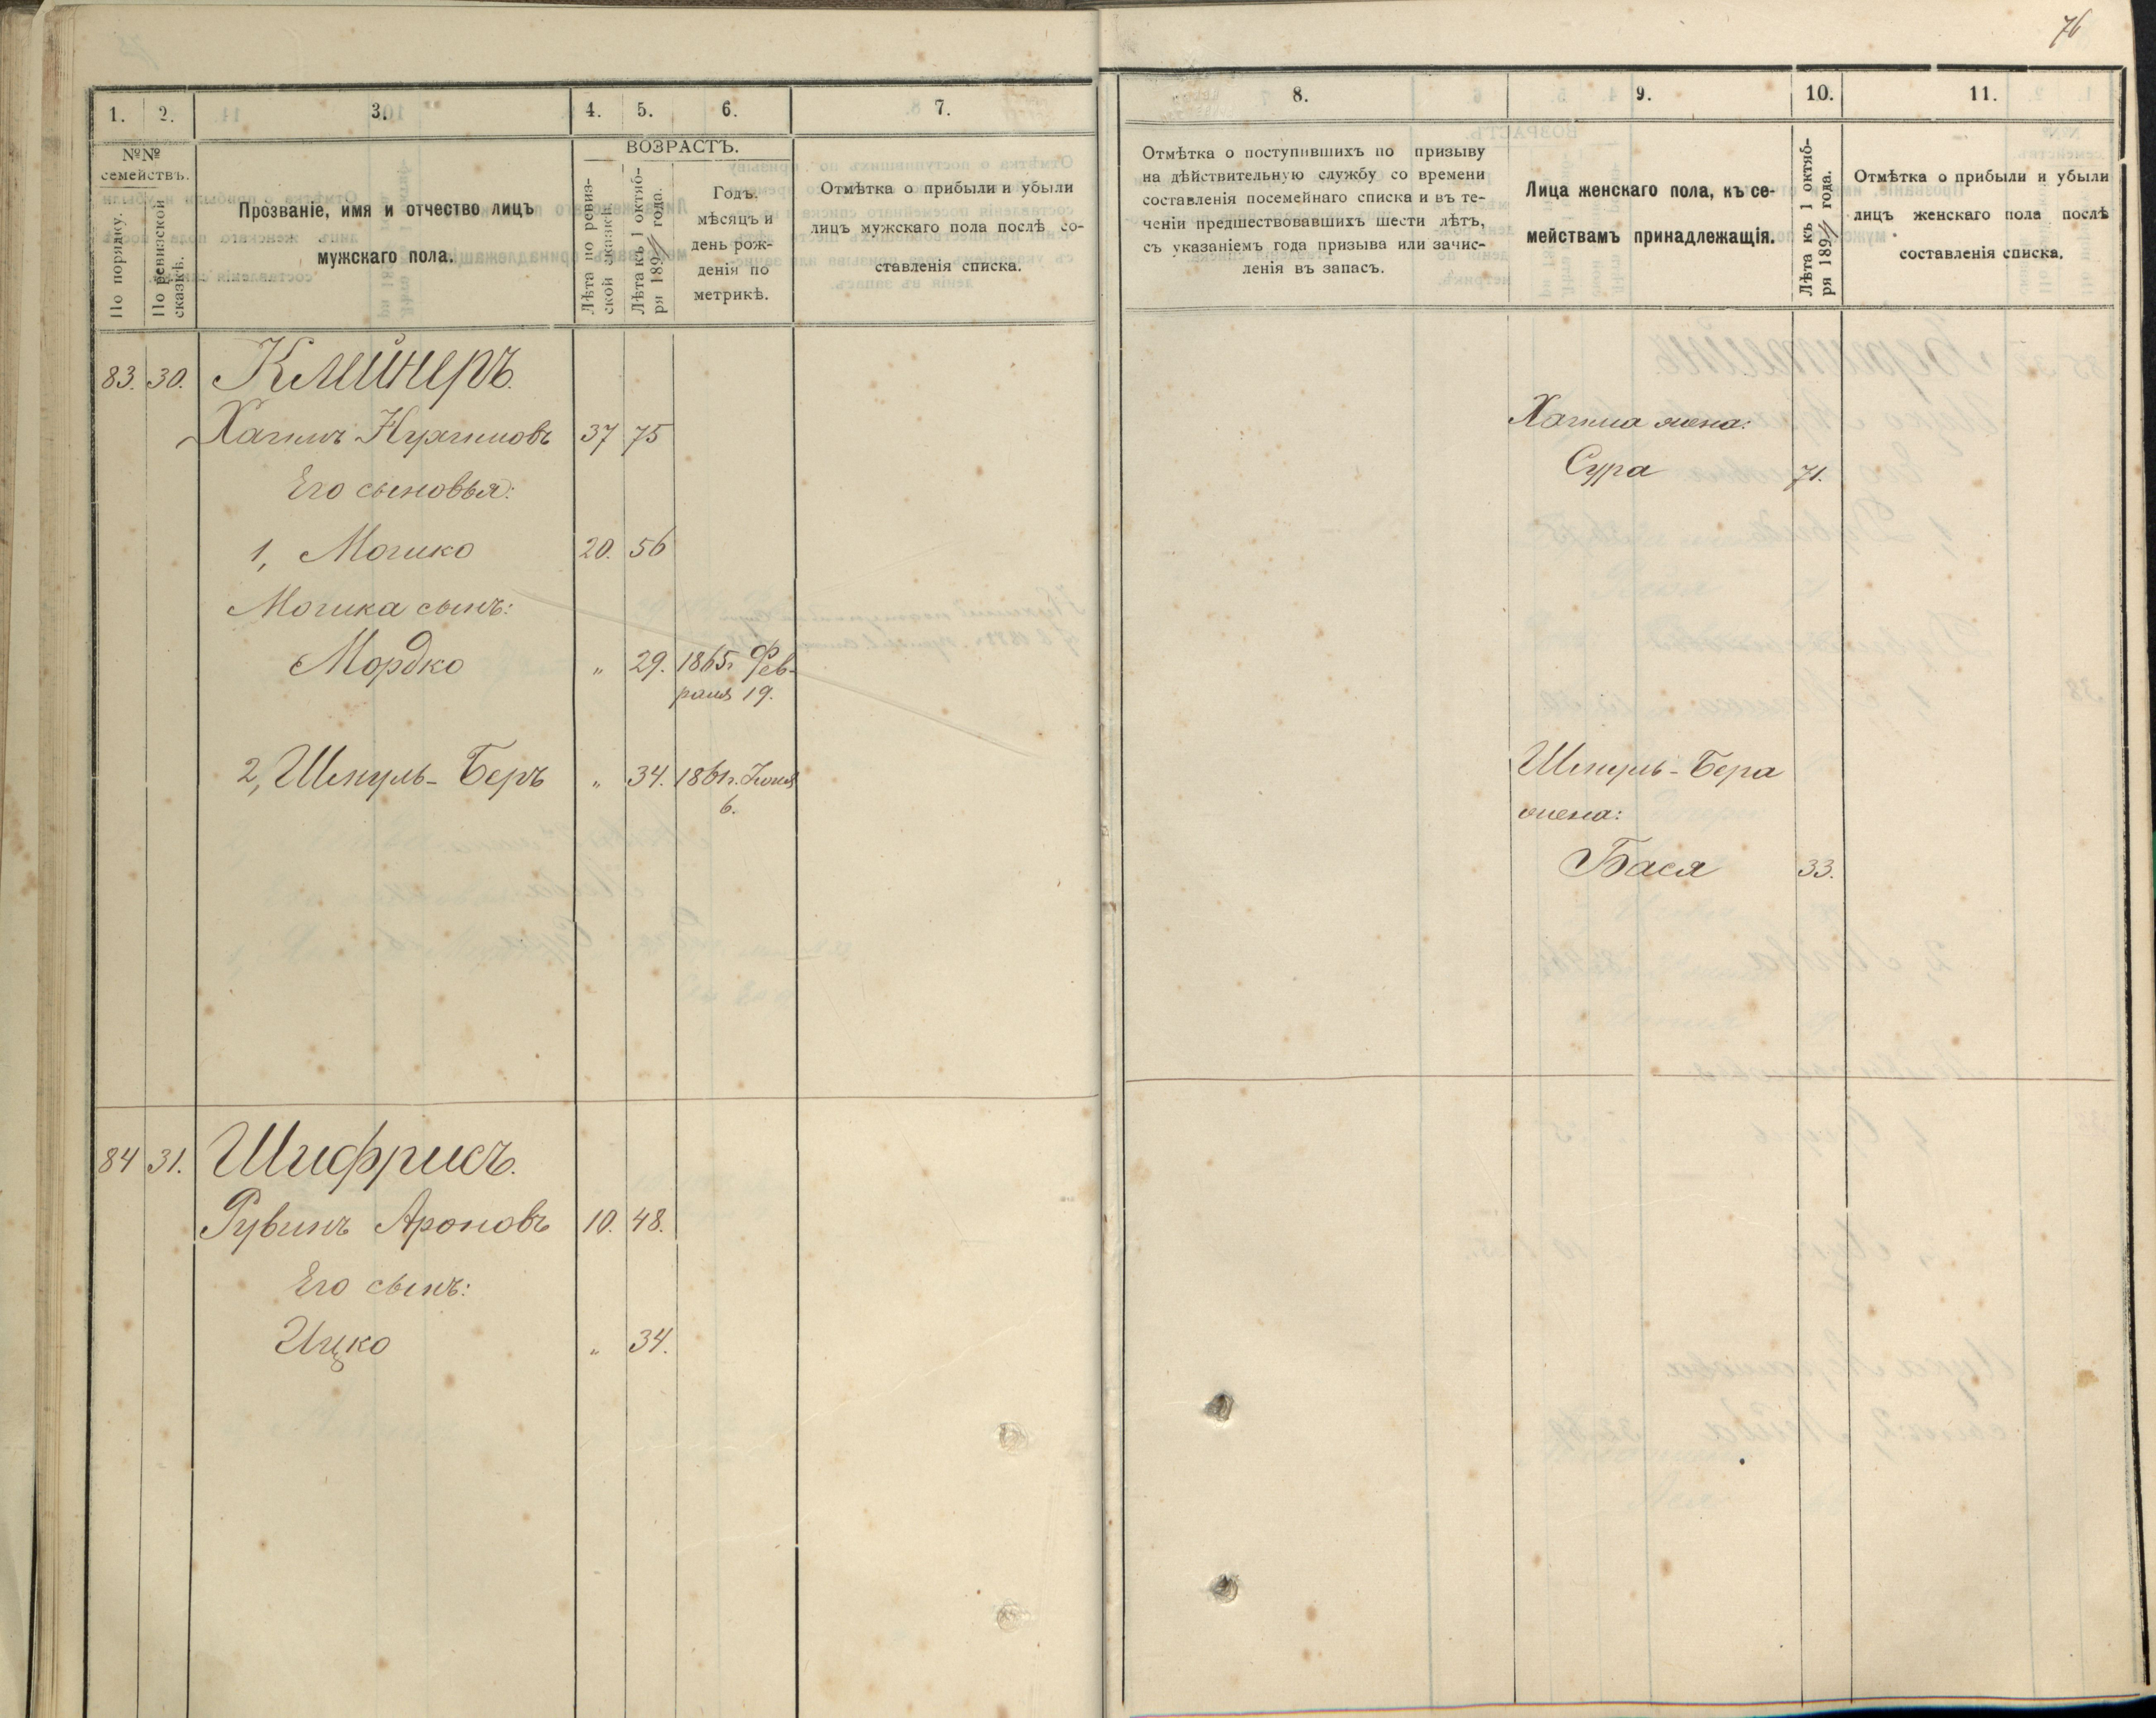 76
1. 2. 3. 4. 5. 6. 7.
№№ семействъ.
По порядку.
По ревизской сказкѣ.
Прозваніе, имя и отчество лицъ
мужскаго пола.
ВОЗРАСТЪ.
Лѣта по ревиз-
ской сказкѣ.
Лѣта къ 1 октяб-
ря 189 года.
Годъ.
мѣсяцъ и
день рож-
денія по
метрикѣ.
Отмѣтка о прибыли и убыли
лицъ мужскаго пола послѣ со-
ставленія списка.
83. 30. Клейнеръ.
Хаимъ 37 75
Его сыновья:
1, Мошко 20. 56
Мошка сынъ:
Мордко " 29. 1865г. Фев-
раля 19.
2, Шмуль-Беръ " 34. 186 г. Іюня
6.
84 31. Шифрисъ.
Рувинъ Ароновъ 10. 48.
Его сынъ:
Ицко " 34.
8. 9. 10. 11.
Отмѣтка о поступившихъ по призыву
на дѣйствительную службу со времени
составленія посемейнаго списка и въ те-
ченіи предшествовавшихъ шести лѣтъ,
съ указаніемъ года призыва или зачис-
ленія въ запасъ.
Лица женскаго пола, къ се-
мействамъ принадлежащія.
Лѣта къ 1 октяб-
ря 189 года.
Отмѣтка о прибыли и убыли
лицъ женскаго пола послѣ
составленія списка.
Хаима жена:
Сура 71.
Шмуль-Бера
жена:
Бася 33.